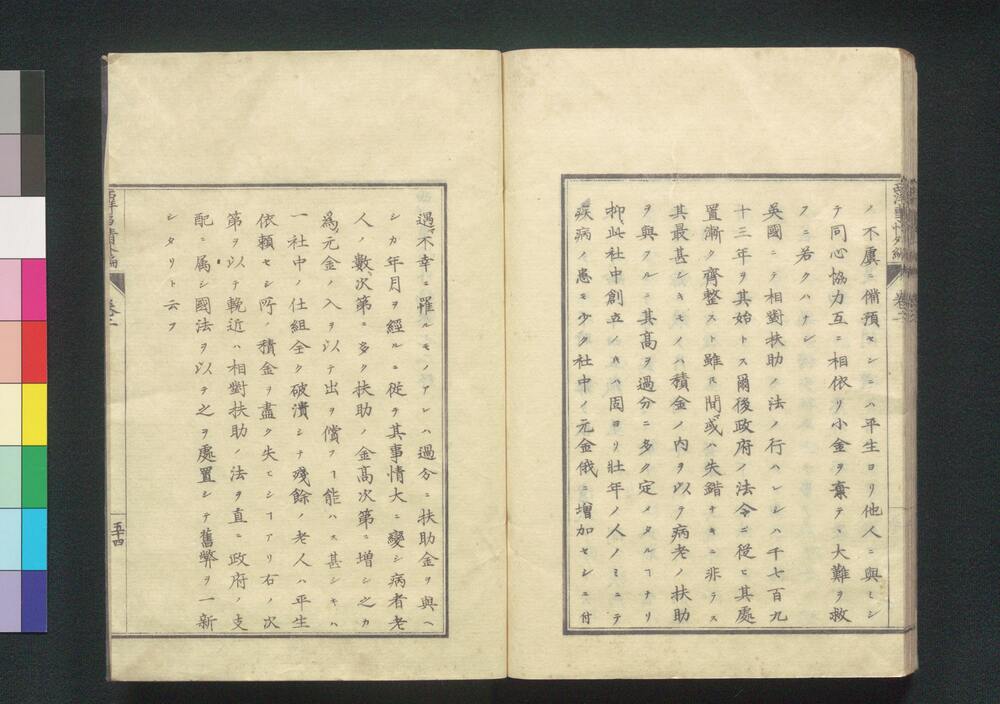 ノ不虞ニ備預センニハ平生ヨリ他人ニ與ミシ
テ同心協力互ニ相依リ小金ヲ棄テヽ大難ヲ救
フニ若クハナシ
英國ニテ相對扶助ノ法ノ行ハレシハ千七百九
十三年ヲ其始トス爾後政府ノ法令ニ從ヒ其處
置漸ク齊整スト雖𪜈間或ハ失錯ナキニ非ラス
其最甚シキモノハ積金ノ内ヲ以テ病老ノ扶助
ヲ與フルニ其高ヲ過分ニ多ク定メタルヿナリ
抑此社中創立ノ片ハ固ヨリ壮年ノ人ノミニテ
疾病ノ患モ少ク社中ノ元金俄ニ増加セシニ付
過不幸ニ罹ルモノアレハ過分ニ扶助金ヲ與ヘ
シカ年月ヲ經ルニ從ヲ其事情大ニ變シ病者老
人ノ數次第ニ多ク扶助ノ金高次第ニ増シ之カ
爲元金ノ入ヲ以テ出ヲ償フヿ能ハス甚シキハ
一社中ノ仕組全ク破潰シテ殘餘ノ老人ハ平生
依頼セシ所ノ積金ヲ盡ク失ヒシヿアリ右ノ次
第ヲ以テ輓近ハ相對扶助ノ法ヲ直ニ政府ノ支
配ニ属シ國法ヲ以テ之ヲ處置シテ舊弊ヲ一新
シタリト云フ
西洋事情外編
卷二
五十四